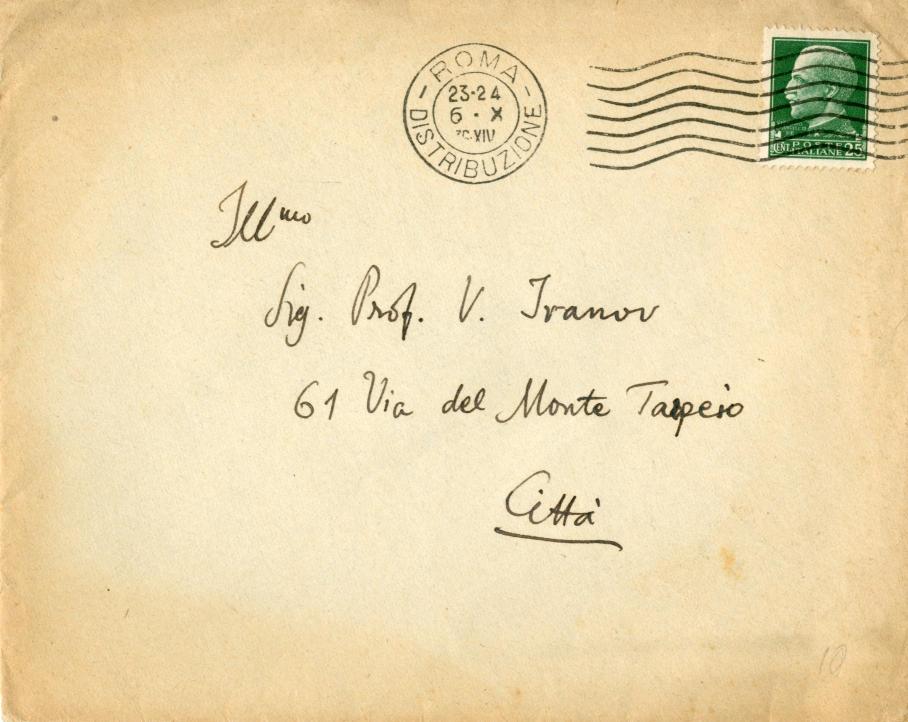 ROMA
23-24
6 · X
XIV
DISTRIBUZIONE
POSTE
CENT. ITALIANE 25
Ill^mo
Sig. Prof. V. Ivanov
61 Via del Monte Tarpeio
Città
10